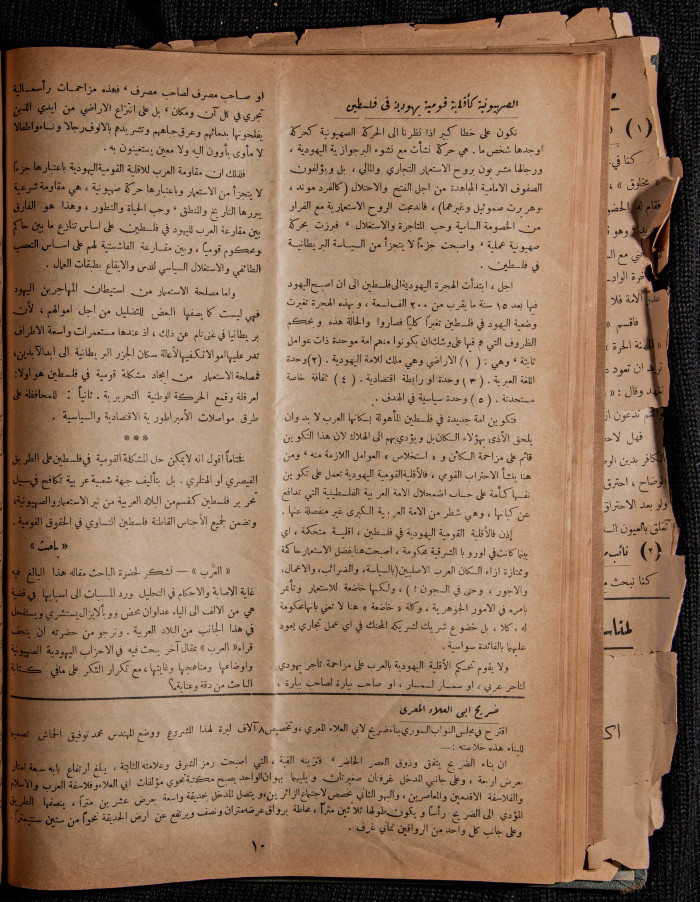 الصهيونية كأقلية قومية يهودية في فلسطين
نكون على خطا كبير اذا نظرنا الى الحركة الصهيونية كحركة
اوجدها شخص ما. هي حركة نشأت مع نشوء البرجوازية اليهودية ،
ورجالها مشربون بروح الاستعمار التجاري والمالي ، بل ويؤلفون
الصفوف الامامية المجاهدة من اجل الفتح والاحتلال (كالفرد موند ،
وهربرت صموئيل وغيرهما) ، فاندمجت الروح الاستعمارية مع الفرار
من الخصومة السامية وحب المتاجرة والاستغلال ‘ فبرزت بحركة
صهيونية عملية ‘ واصبحت جزءاً لا يتجزأ من السياسة البريطانية
في فلسطين .
اجل ، ابتدأت الهجرة اليهودية الى فلسطين الى ان اصبح اليهود
فيها بعد ١٥ سنة ما يقرب من ٢٠٠ الف نسمة ، وبهذه الهجرة تغيرت
وضعية اليهود في فلسطين تغيراً كلياً فصاروا والحالة هذه وبحكم
الظروف التي هم فيها على وشك ان يكونوا منهم امة موحدة ذات عوامل
ثابتة ‘ وهي : (١) الاراضي وهي ملك للامة اليهودية . (٢) وحدة
اللغة العبرية . (٣) وحدة او رابطة اقتصادية . (٤) ثقافة خاصة
مستحدثة . (٥) وحدة سياسية في الهدف .
فتكوين امة جديدة في فلسطين المأهولة بسكانها العرب لا بد وان
يلحق الأذى بهؤلاء السكان بل ويؤدي بهم الى الهلاك لان هذا التكوين
قائم على مزاحمة السكان و « استخلاص » العوامل اللازمة منه ‘ ومن
هنا ينشأ الاحتراب القومي ، فالأقلية القومية اليهودية تعمل على تكوين
نفسها كأمة على حساب اضمحلال الامة العربية الفلسطينية التي تدافع
عن كيانها ، وهي شطر من الامة العربية الكبرى غير منفصلة عنها .
إذن فالأقلية القومية اليهودية في فلسطين ، اقلية متحكمة ، اي
بينما كانت في اوروبا الشرقية محكومة ، اصبحت هنا بفضل الاستعمار حاكمة
وممتازة ازاء السكان العرب الاصليين (بالسياسة، والضرائب، والاعمال،
والاجور ، وحتى في السجون !) ، ولكنها خاضعة للاستعمار وتأتمر
بامره في الامور الجوهرية ، وكلمة « خاضعة » هنا لا تعني بانها محكومة
له ، كلا ، بل خضوع شريك لشريكه المحنك في اي عمل تجاري يعود
عليهما بالفائدة سواسية .
ولا يقوم تحكم الأقلية اليهودية بالعرب على مزاحمة تاجر يهودي
لتاجر عربي ، او سمسار لسمسار ، او صاحب بيارة لصاحب بيارة ،
او صاحب مصرف لصاحب مصرف ‘ فهذه مزاحمات رأسمالية
تجري في كل آن ومكان ‘ بل على انتزاع الاراضي من ايدي الذين
يفلحونها بدمائهم وعرق جباههم وتشريدهم بالالوف رجالا ونساء واطفالا
لا مأوى يأوون اليه ولا معين يستعينون به .
فلذلك ان مقاومة العرب للاقلية القومية اليهودية باعتبارها جزءاً
لا يتجزأ من الاستعمار وباعتبارها حركة صهيونية ، هي مقاومة شرعية
يبررها التاريخ والمنطق ‘ وحب الحياة والتطور ، وهذا هو الفارق
بين مقارعة العرب لليهود في فلسطين على اساس تنازع ما بين حاكم
ومحكوم قومياً ، وبين مقارعة الفاشستية لهم على اساس التعصب
الطائفي والاستغلال السياسي للدس والايقاع بطبقات العمال .
واما مصلحة الاستعمار من استيطان المهاجرين اليهود
فهي ليست كما يصفها البعض للتضليل من اجل اموالهم ، لأن
بريطانيا في غنى تام عن ذلك ، اذ عندها مستعمرات واسعة الاطراف
تدر عليها اموالا تكفيها لاعالة سكان الجزر البريطانية الى ابد الآبدين،
فمصلحة الاستعمار من ايجاد مشكلة قومية في فلسطين هو اولا:
لعرقلة وقمع الحركة الوطنية التحريرية . ثانياً : للمحافظة على
طرق مواصلات الأمبراطورية الاقتصادية والسياسية .
***
ختاماً اقول انه لا يمكن حل المشكلة القومية في فلسطين على الطريق
القيصري او الهتلري . بل بتأليف جبهة شعبية عربية تكافح في سبيل
تحرير فلسطين كقسم من البلاد العربية من نير الاستعمار والصهيونية،
وتضمن لجميع الأجناس القاطنة فلسطين التساوي في الحقوق القومية .
« باحث »
« العرب » — نشكر لحضرة الباحث مقاله هذا البالغ فيه
غاية الاصابة والاحكام في التحليل ورد المسببات الى اسبابها في قضية
هي من الالف الى الياء عدوان محض ووبأ لايزال يستشري ويستفحل
في هذا الجانب من البلاد العربية . ونرجو من حضرته ان يتحف
قراء «العرب» بمقال آخر يبحث فيه في الاحزاب اليهودية الصهيونية
واوضاعها ومناهجها وغايتها، مع تكرار الشكر على مافي كتابة
الباحث من دقة وعناية.
ضريح ابي العلاء المعري
اقترح في مجلس النواب السوري بناء ضريح لابي العلاء المعري، وتخصيص ٨ آلاف ليرة لهذا المشروع ووضع المهندس محمد توفيق الخماش تصميم
للبناء هذه خلاصته :—
ان بناء الضريح يتفق وذوق العصر الحاضر ‘ فتزينه القبة ، التي اصبحت رمز الشرق وعلامته الثابتة ، يبلغ ارتفاع بابه سبعة امتار
بعرض اربعة ، وعلى جانبي المدخل غرفتان صغيرتان ويليهما بهوان الواحد يصبح مكتبة تحوي مؤلفات ابي العلاء وفلاسفة العرب والاسلام
والفلاسفة الاقدمين والمعاصرين ، والبهو الثاني مخصص لاجتماع الزائرين، ويتصل المدخل بحديقة واسعة بعرض عشرين متراً ، ينصفها الطريق
المؤدي الى الضريح رأساً ويكون طولها ثلاثين متراً، محاطة برواق عرضه متران ونصف ويرتفع عن ارض الحديقة نحواً من ستين سنتيمتراً.
وعلى جانب كل واحد من الرواقين ثماني غرف .
١٠